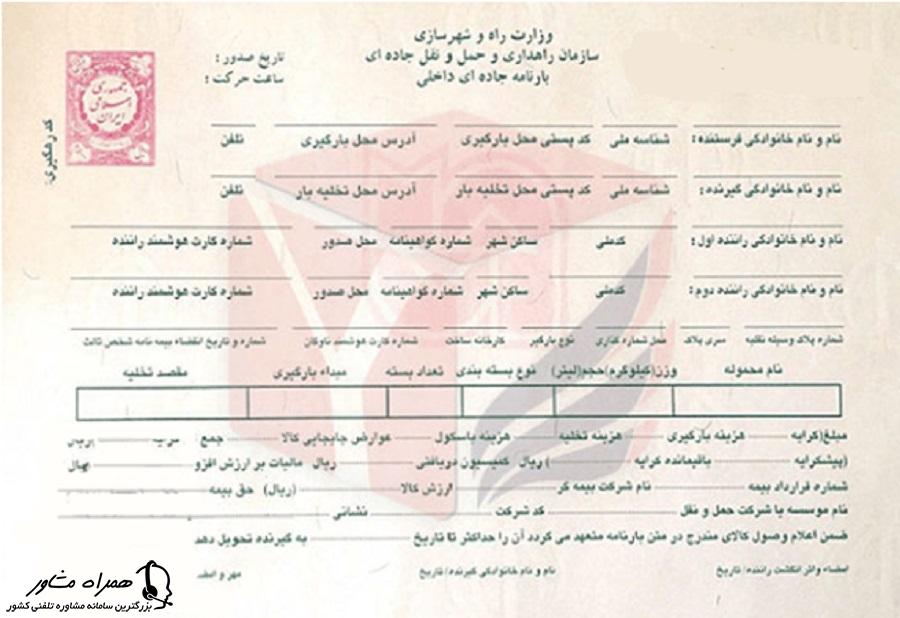 وزارت راه و شهرسازی
سازمان راهداری و حمل و نقل جاده ای
بارنامه جاده ای داخلی
تاریخ صدور :
ساعت حرکت :
جمهوری
اسلامی
ایران
کد رهگیری:
نام و نام خانوادگی فرستنده: شناسه ملی کد پستی محل بارگیری آدرس محل بارگیری تلفن
نام و نام خانوادگی گیرنده: شناسه ملی کد پستی محل تخلیه بار آدرس محل تخلیه بار تلفن
نام و نام خانوادگی راننده اول: کدملی ساکن شهر شماره گواهینامه محل صدور شماره کارت هوشمند راننده
نام و نام خانوادگی راننده دوم: کدملی ساکن شهر شماره گواهینامه محل صدور شماره کارت هوشمند راننده
شماره پلاک وسیله نقلیه سری پلاک محل شماره گذاری نوع بارگیر کارخانه ساخت شماره کارت هوشمند ناوگان شماره و تاریخ انقضاء بیمه نامه شخص ثالث
نام محموله وزن(کیلوگرم)حجم(لیتر) نوع بسته بندی تعداد بسته مبداء بارگیری مقصد تخلیه
مبلغ(کرایه هزینه بارگیری هزینه تخلیه هزینه باسکول عوارض جابجایی کالا جمع: ضریب ریال
(پیشکرایه باقیمانده کرایه ) ریال کمیسیون دریافتی ریال مالیات بر ارزش افزو ریال
شماره قرارداد بیمه نام شرکت بیمه گر ارزش کالا (ریال) حق بیمه
نام موسسه یا شرکت حمل و نقل کد شرکت نشانی
ضمن اعلام وصول کالای مندرج در متن بارنامه متعهد می گردد آن را حداکثر تا تاریخ به گیرنده تحویل دهد
امضاء واثر انگشت راننده/ تاریخ نام و نام خانوادگی گیرنده/ تاریخ مهر و امضـ
همراه مشاور
بزرگترین سامانه مشاوره تلفنی کشور